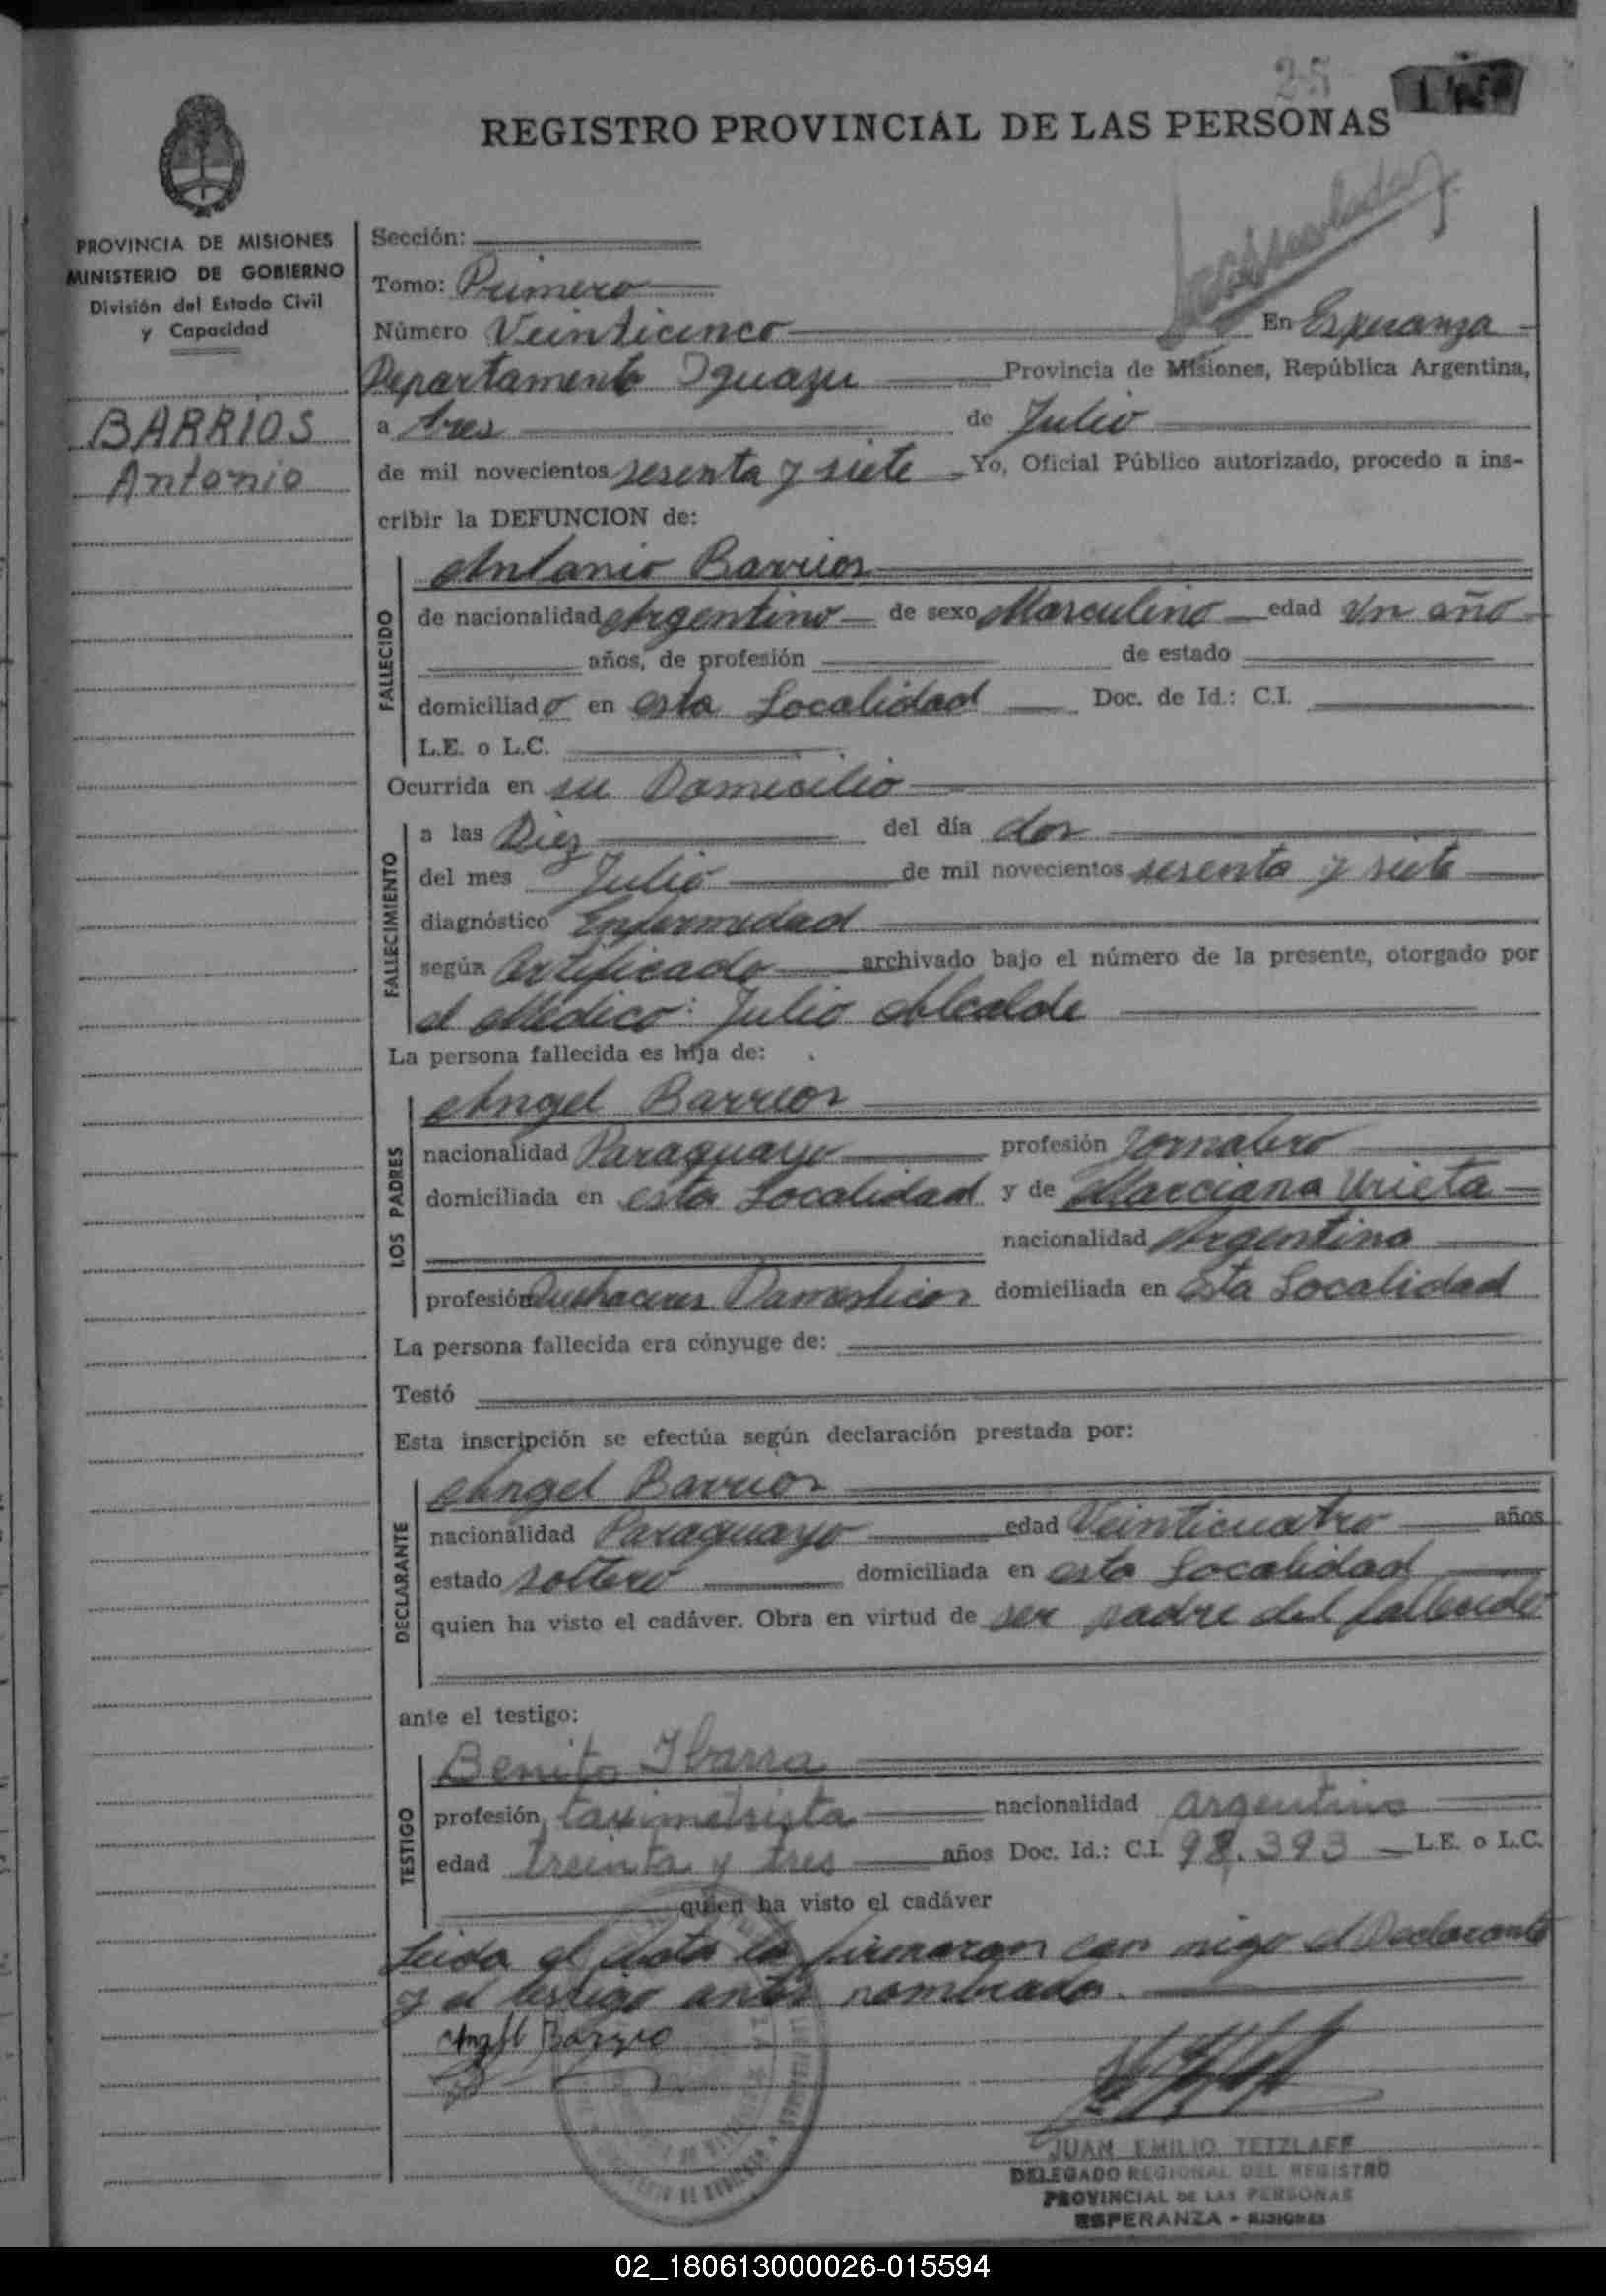 25
REGISTRO PROVINCIAL DE LAS PERSONAS
PROVINCIA DE MISIONES
MINISTERIO DE GOBIERNO
División del Estado Civil
y Capacidad
BARRIOS
Antonio
Sección:
Tomo: Primero
Número Veinticinco En Esperanza
Departamento Iguazu Provincia de Misiones, República Argentina,
a tres de Julio
de mil novecientos sesenta y siete Yo, Oficial Público autorizado, procedo a ins-
cribir la DEFUNCION de:
FALLECIDO
Antonio Barrios
de nacionalidad Argentino de sexo Masculino edad Un año
años, de profesión de estado
domiciliado en esta Localidad Doc. de Id.: C.I.
L.E. o L.C.
Ocurrida en su Domicilio
FALLECIMIENTO
a las Diez del día dos
del mes Julio de mil novecientos sesenta y siete
diagnóstico Enfermedad
según Certificado archivado bajo el número de la presente, otorgado por
el Medico: Julio Alcalde
La persona fallecida es hija de:
LOS PADRES
Angel Barrios
nacionalidad Paraguayo profesión Jornalero
domiciliada en esta Localidad y de Marciana Urieta
nacionalidad Argentina
profesión Quehaceres Domesticos domiciliada en esta Localidad
La persona fallecida era cónyuge de:
Testó
Esta inscripción se efectúa según declaración prestada por:
DECLARANTE
Angel Barrios
nacionalidad Paraguayo edad Veinticuatro años
estado soltero domiciliada en esta Localidad
quien ha visto el cadáver. Obra en virtud de ser padre del fallecido
ante el testigo:
TESTIGO
Benito Ibarra
profesión taximetrista nacionalidad argentino
edad treinta y tres años Doc. Id.: C.I. 98.393 L.E. o L.C.
quien ha visto el cadáver
Leida el Acta la firmaron con migo el Declarante
y el testigo antes nombrado.
Angel Barrio
JUAN EMILIO TETZLAFF
DELEGADO REGIONAL DEL REGISTRO
PROVINCIAL DE LAS PERSONAS
ESPERANZA - MISIONES
02_180613000026-015594